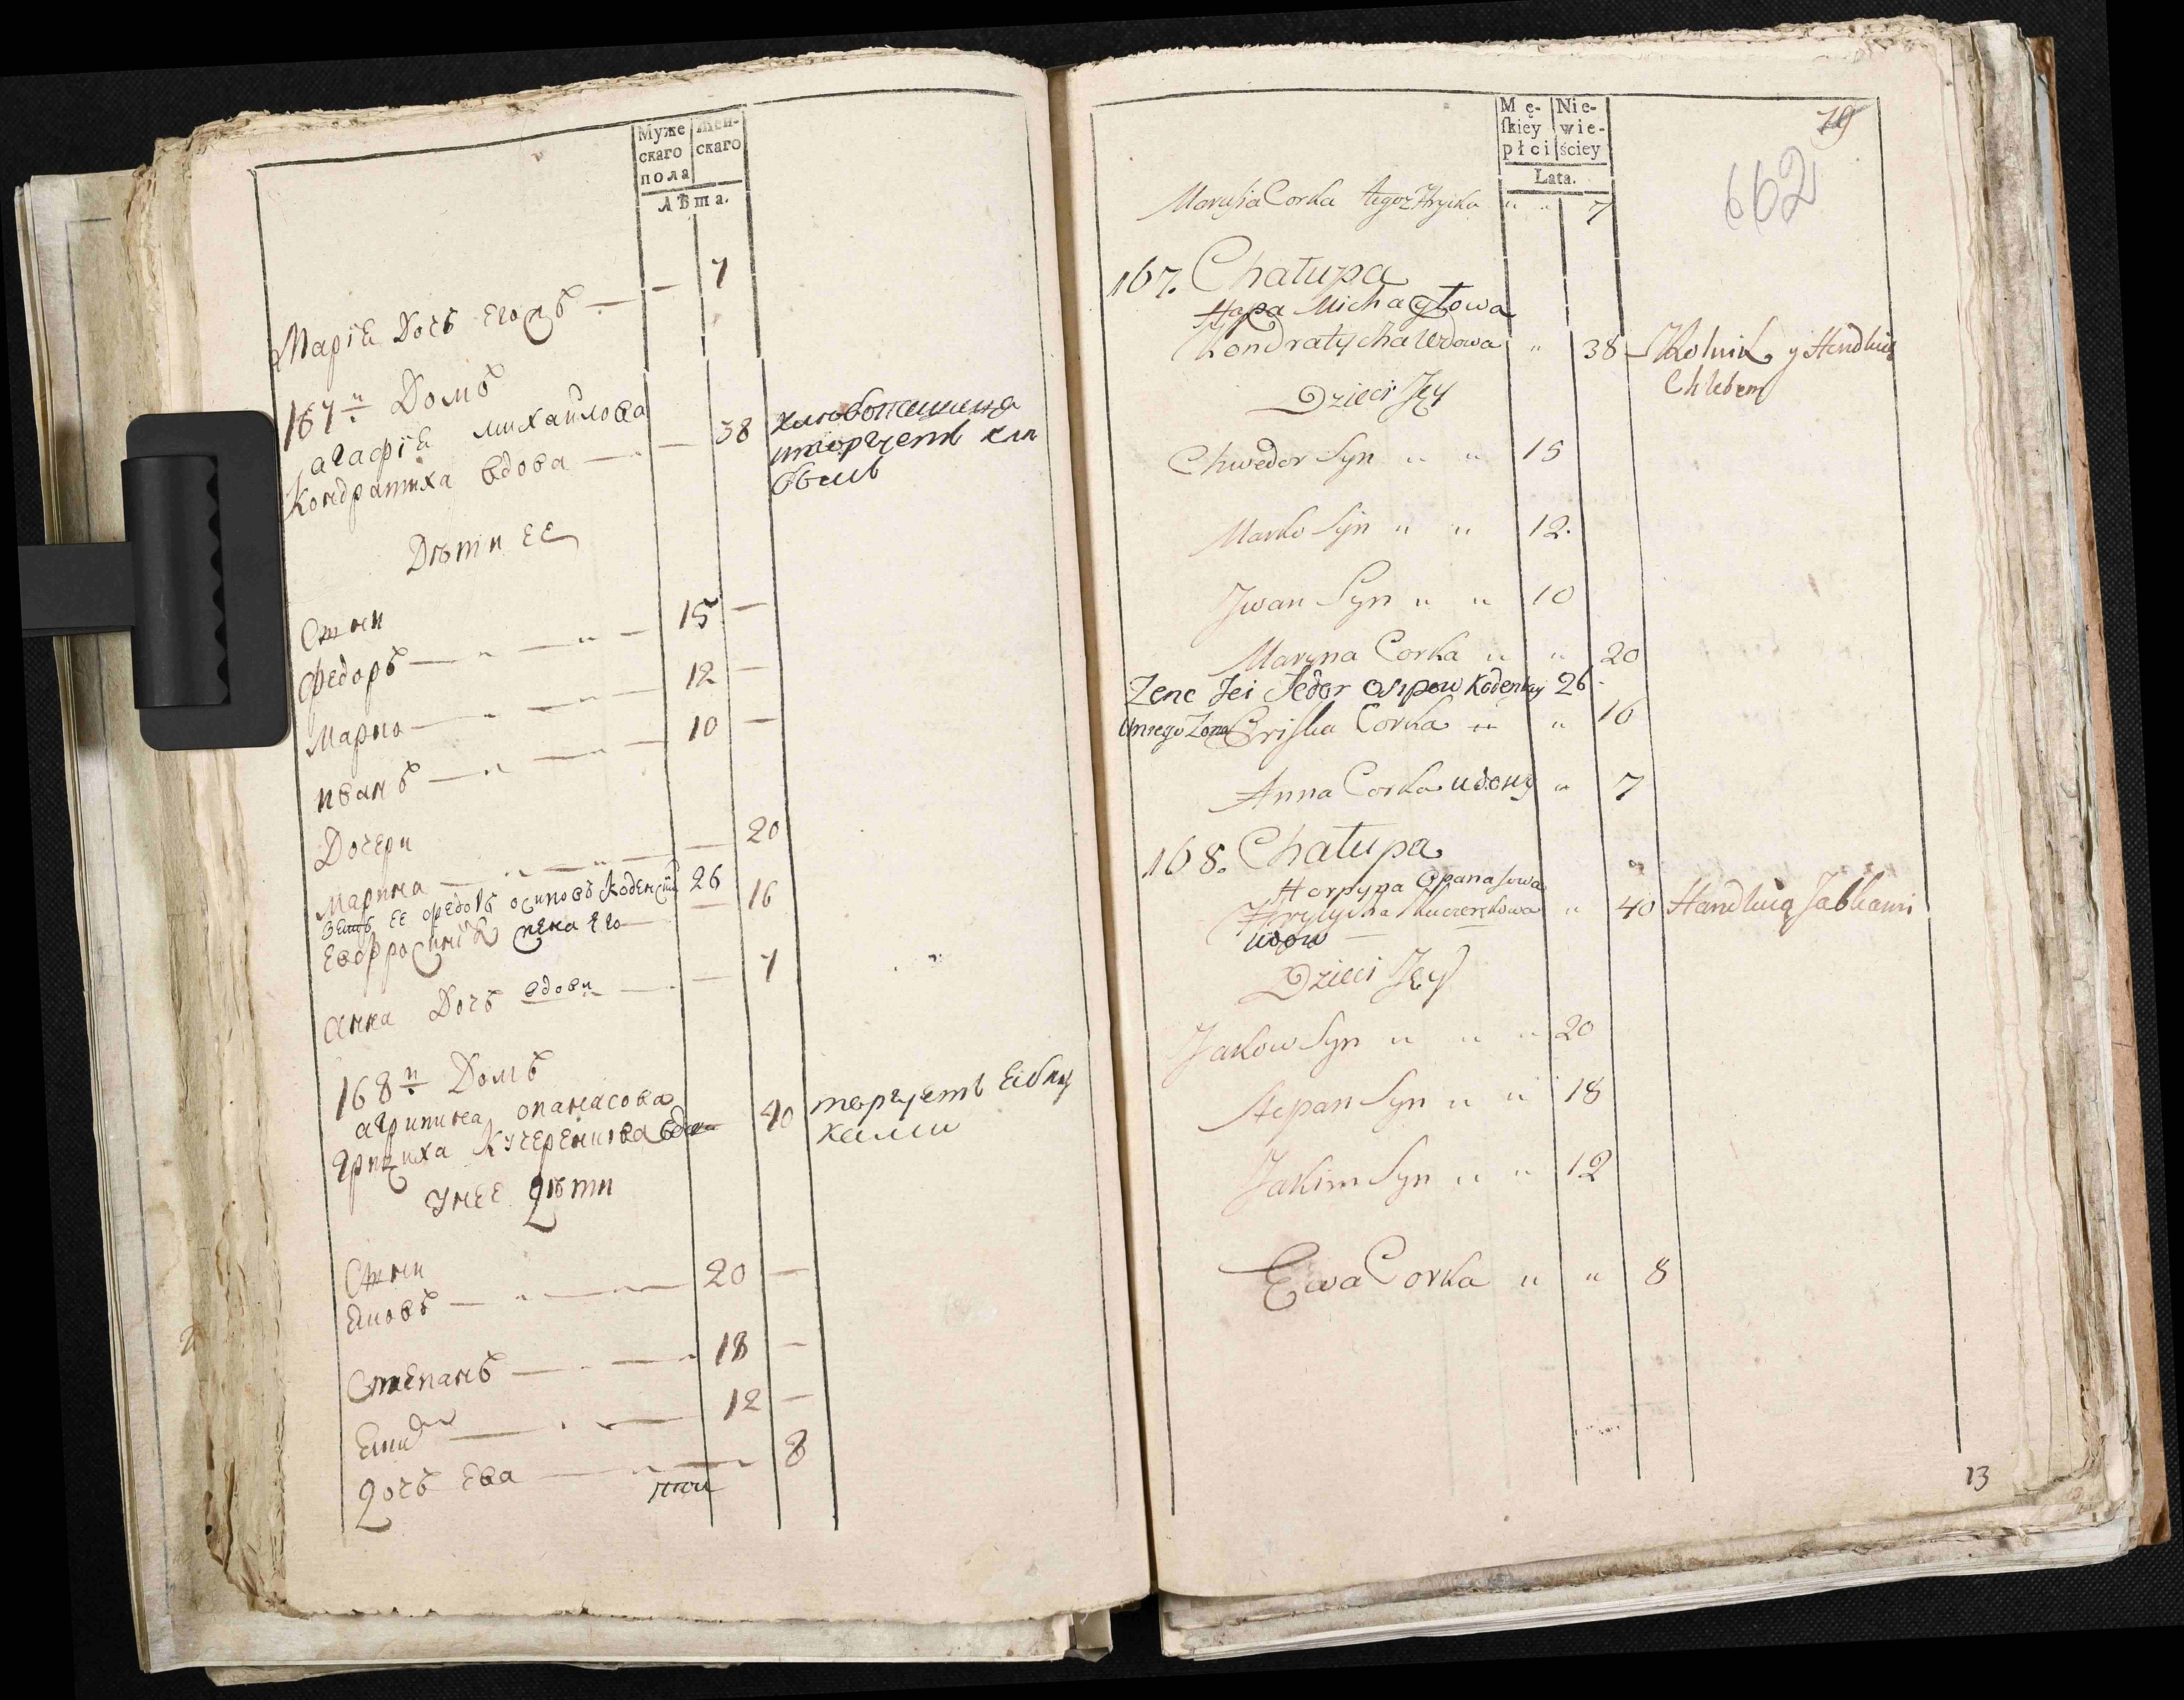 Муже
скаго
пола
Жен-
скаго
Лѣта.
Маріѣ Дочь его — — 7
167й Домъ
агафіѣ михайлова
Кондратиха вдова — — 38
хлѣбопашица
и торгуетъ хлѣ
бомъ
Дѣти ее
Сыни
Федоръ — " — " — 15 —
Марко — " — " — 12 —
иванъ — " — — 10 —
Дочери
Марина — " — " — — 20
зеть ее федоръ осиповъ коденскій 26
Евфросинія жена его — — 16
Анна Дочь вдови — — 7
168й Домъ
агрипина опанасова
Грициха Кучеренкова вдова 40
торгуетъ ебло
ками
У нее дѣти
Сыни
Ековъ — " — — 20 —
Степанъ — " — " 18 —
Еким — " — 12 —
Дочь Ева — " — " 8
Mę-
ſkiey
płci
Nie-
wie-
ściey
Lata.
79
662
Marusia Corka tegoz Hryćka " " 7
167. Chałupa
Hapa Michayłowa
Kondratycha Wdowa " 38 Rolnik y Handluie
Chlebem
Dzieci Jey
Chwedor Syn " " 15
Marko Syn " " 12.
Jwan Syn " " 10
Maryna Corka " " 20
Zenc Jei Fedor Osipow Kodenskij 26
Unego Zona Priska Corka " " 16
Anna Corka udowy " 7
168. Chałupa
Horpyna Opanasowa
Hrycycha Kuczerękowa " 40 Handluią Jabłkami
udow
Dzieci Jey
Jakow Syn " " " 20
Stepan Syn " " 18
Jakim Syn " " 12
Ewa Corka " " 8
13